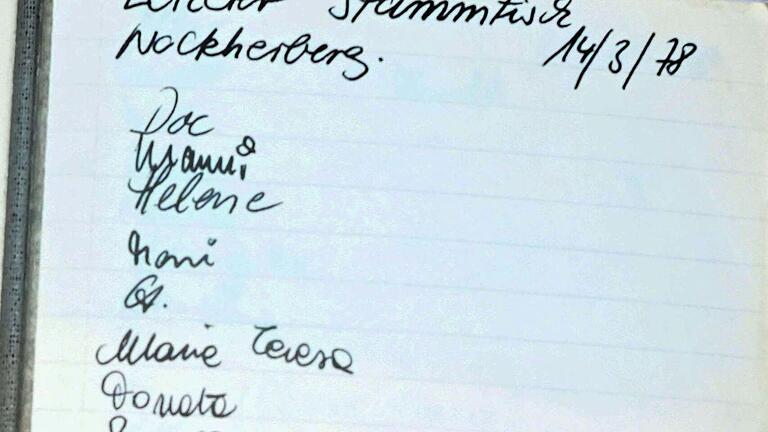 Stammtisch
Nockherberg. 14/3/78
Doc
Manni
Helene
Moni
G.
Marie Teresa
Donata